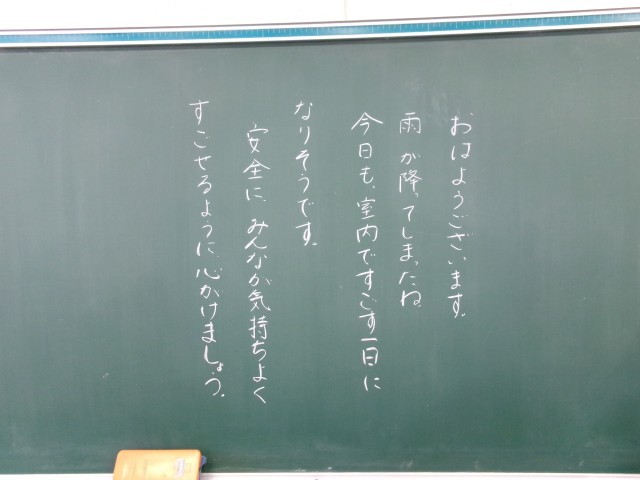 おはようございます。
雨が降ってしまったね。
今日も、室内ですごす一日に
なりそうです。
安全に、みんなが気持ちよく
すごせるように、心がけましょう。